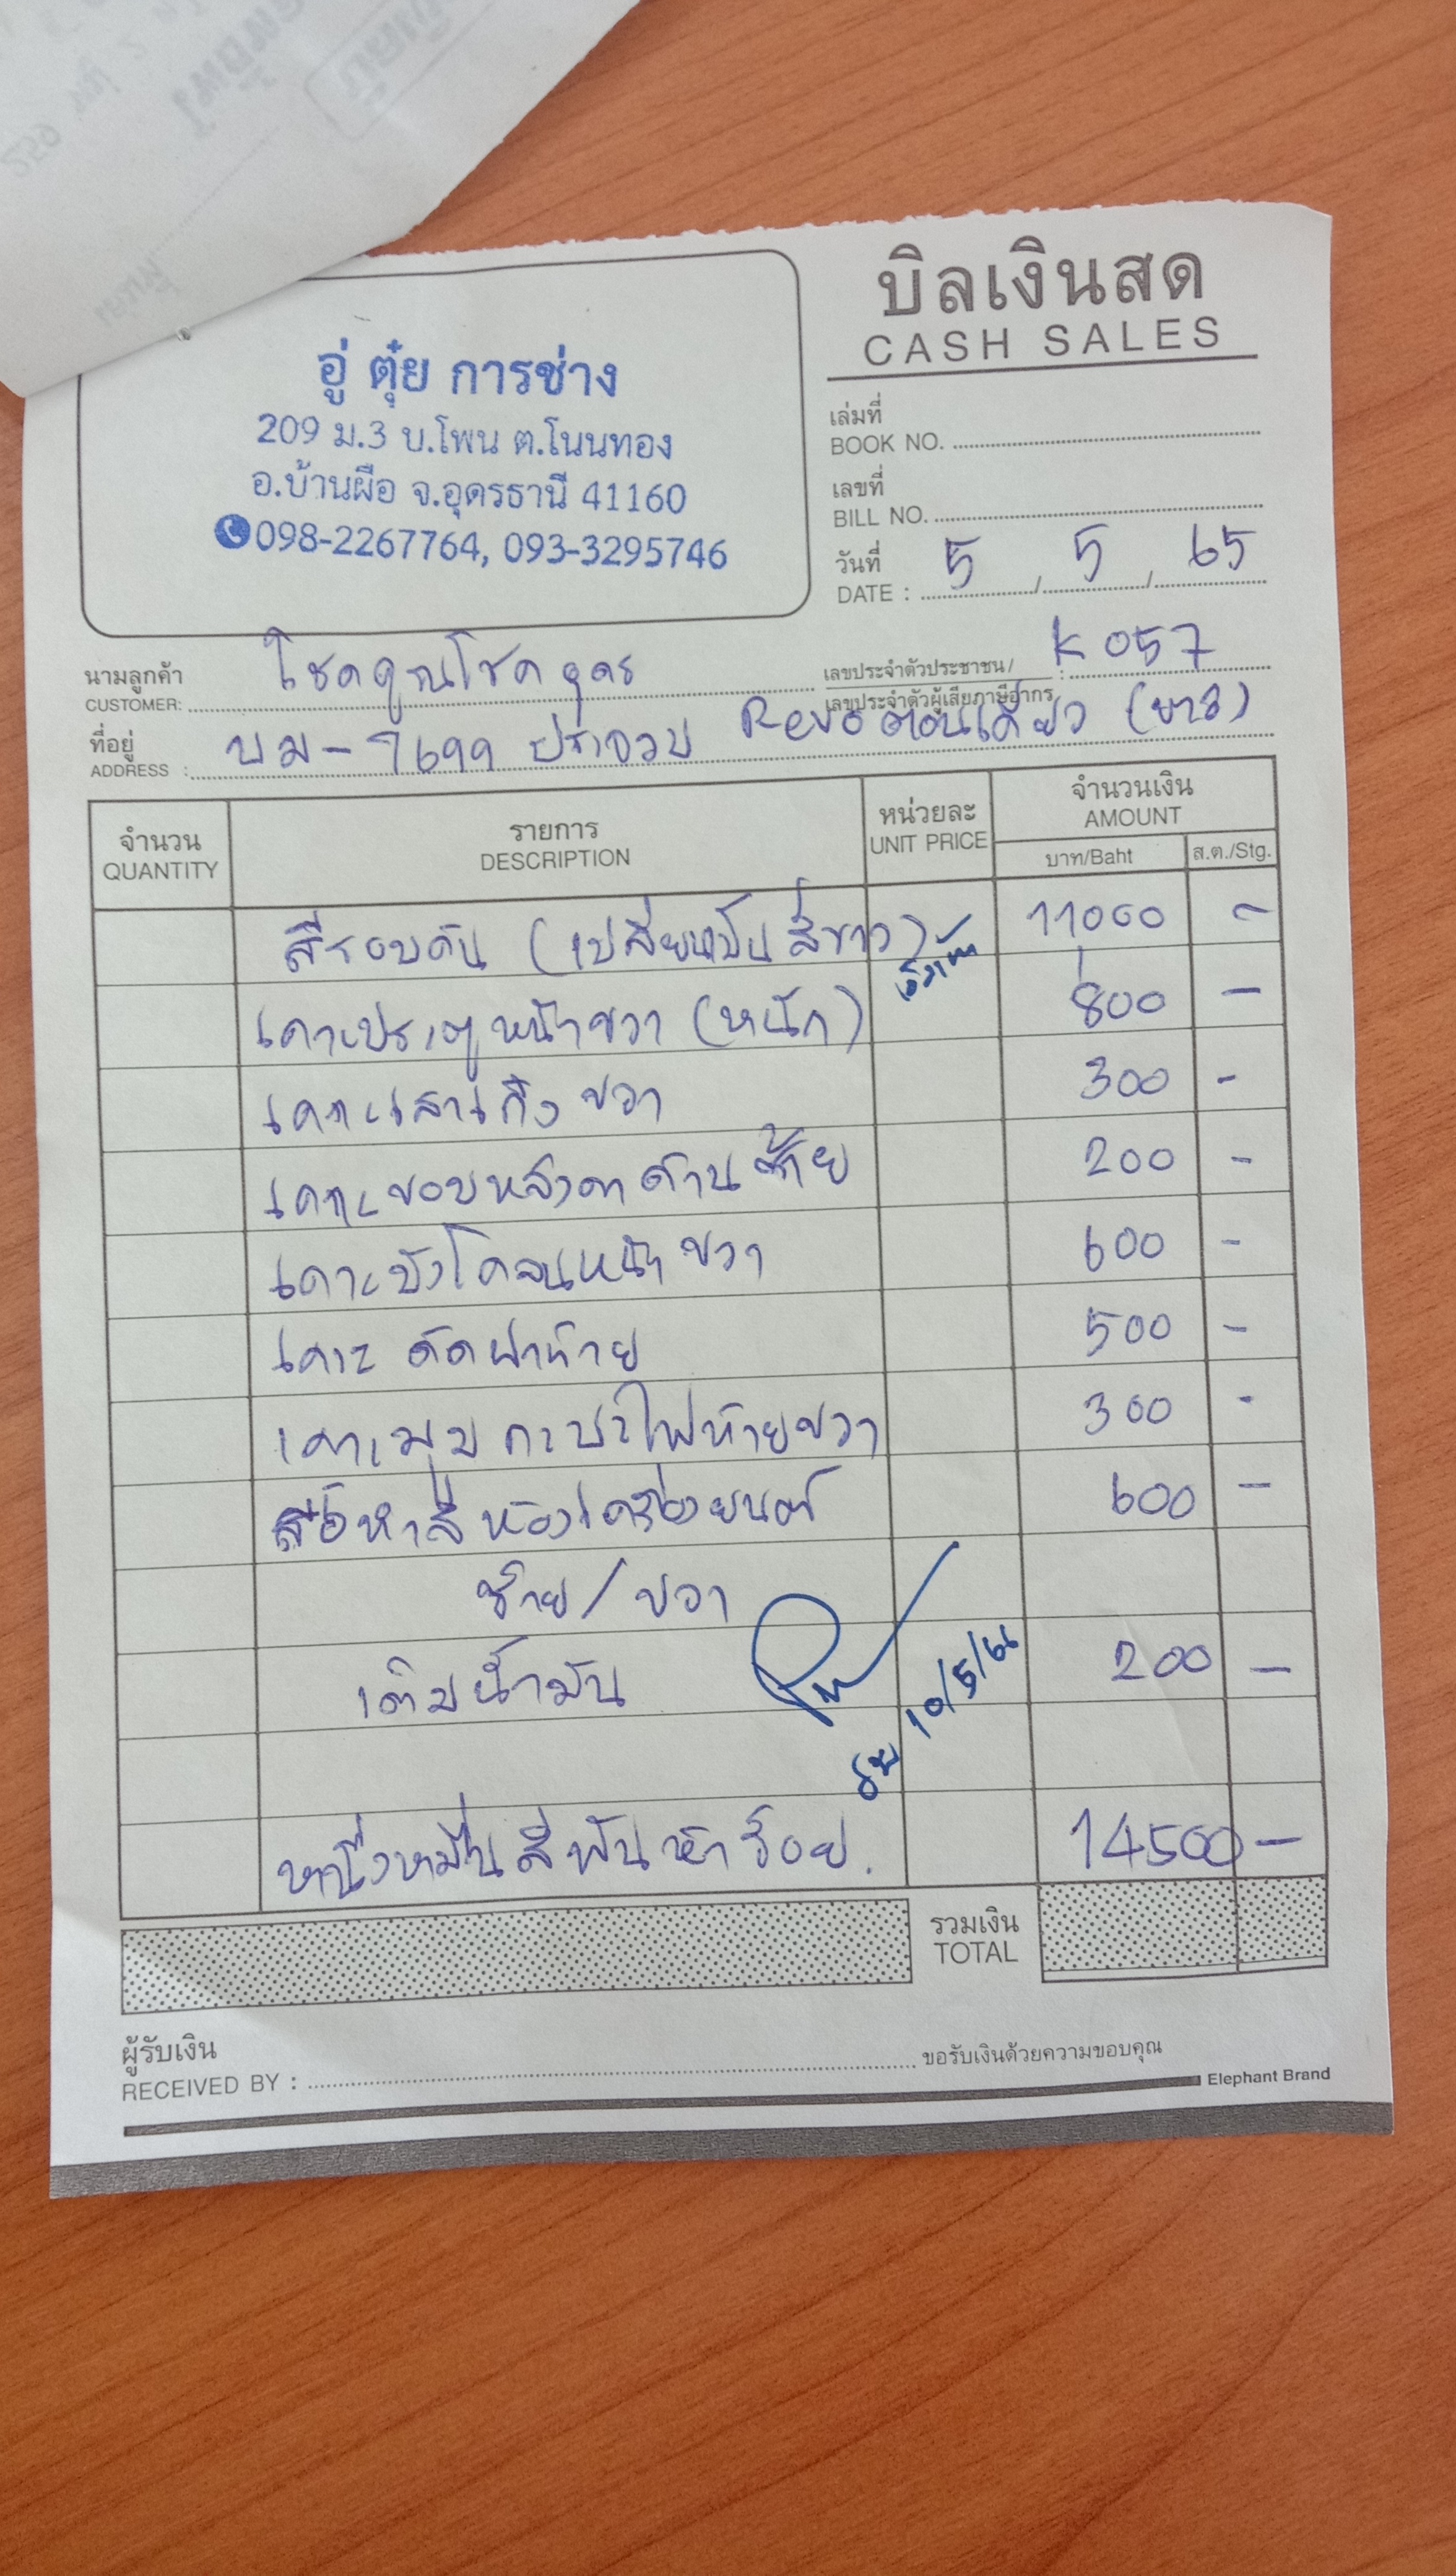 บิลเงินสด
CASH SALES
อู่ ตุ๋ย การช่าง
209 ม.3 บ.โพน ต.โนนทอง
อ.บ้านผือ จ.อุดรธานี 41160
098-2267764, 093-3295746
เล่มที่
BOOK NO.
เลขที่
BILL NO.
วันที่
DATE : 5 / 5 / 65
นามลูกค้า
CUSTOMER: โชคคูณโชค อุดร
เลขประจำตัวประชาชน/
เลขประจำตัวผู้เสียภาษีอากร : K057
ที่อยู่
ADDRESS : บม-7699 ประจวบ Revo ตอนเดียว (ขาว)
จำนวน รายการ หน่วยละ จำนวนเงิน
QUANTITY DESCRIPTION UNIT PRICE AMOUNT
บาท/Baht ส.ต./Stg.
สีรอบคัน (เปลี่ยนเป็นสีขาว) 11000 -
เคาะประตูหน้าขวา (หนัก) 800 -
เคาะเสาเก๋ง ขวา 300 -
เคาะขอบหลังคาด้านซ้าย 200 -
เคาะบังโคลนหน้า ขวา 600 -
เคาะ ดัดฝาท้าย 500 -
เคาะมุมกะบะไฟท้ายขวา 300 -
สีห้องเครื่องยนต์ 600 -
ซ้าย/ขวา
เติมน้ำมัน 200 -
10/5/66
หนึ่งหมื่นสี่พันห้าร้อย. 14500 -
รวมเงิน
TOTAL
ผู้รับเงิน
RECEIVED BY :
ขอรับเงินด้วยความขอบคุณ
Elephant Brand